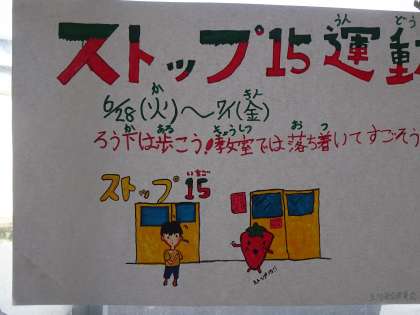 うん どう
ストップ15運動
か きん
6/28(火)〜7/1(金)
か ある きょうしつ お つ
ろう下は歩こう!教室では落ち着いてすごそう
いちご
ストップ15